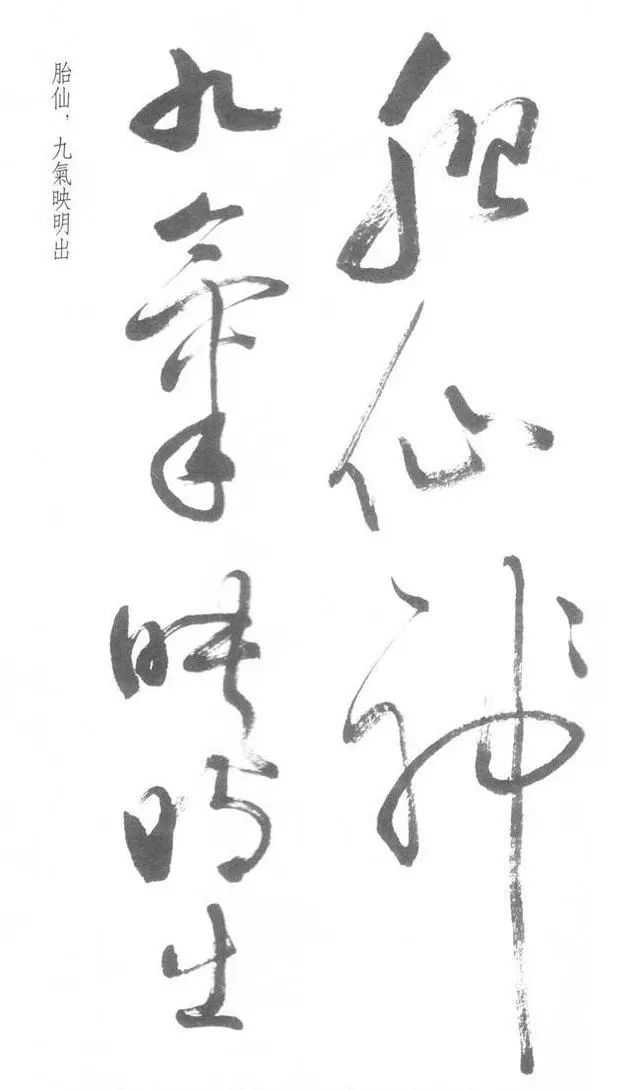 胎仙神
九氣映明出
胎仙，九氣映明出